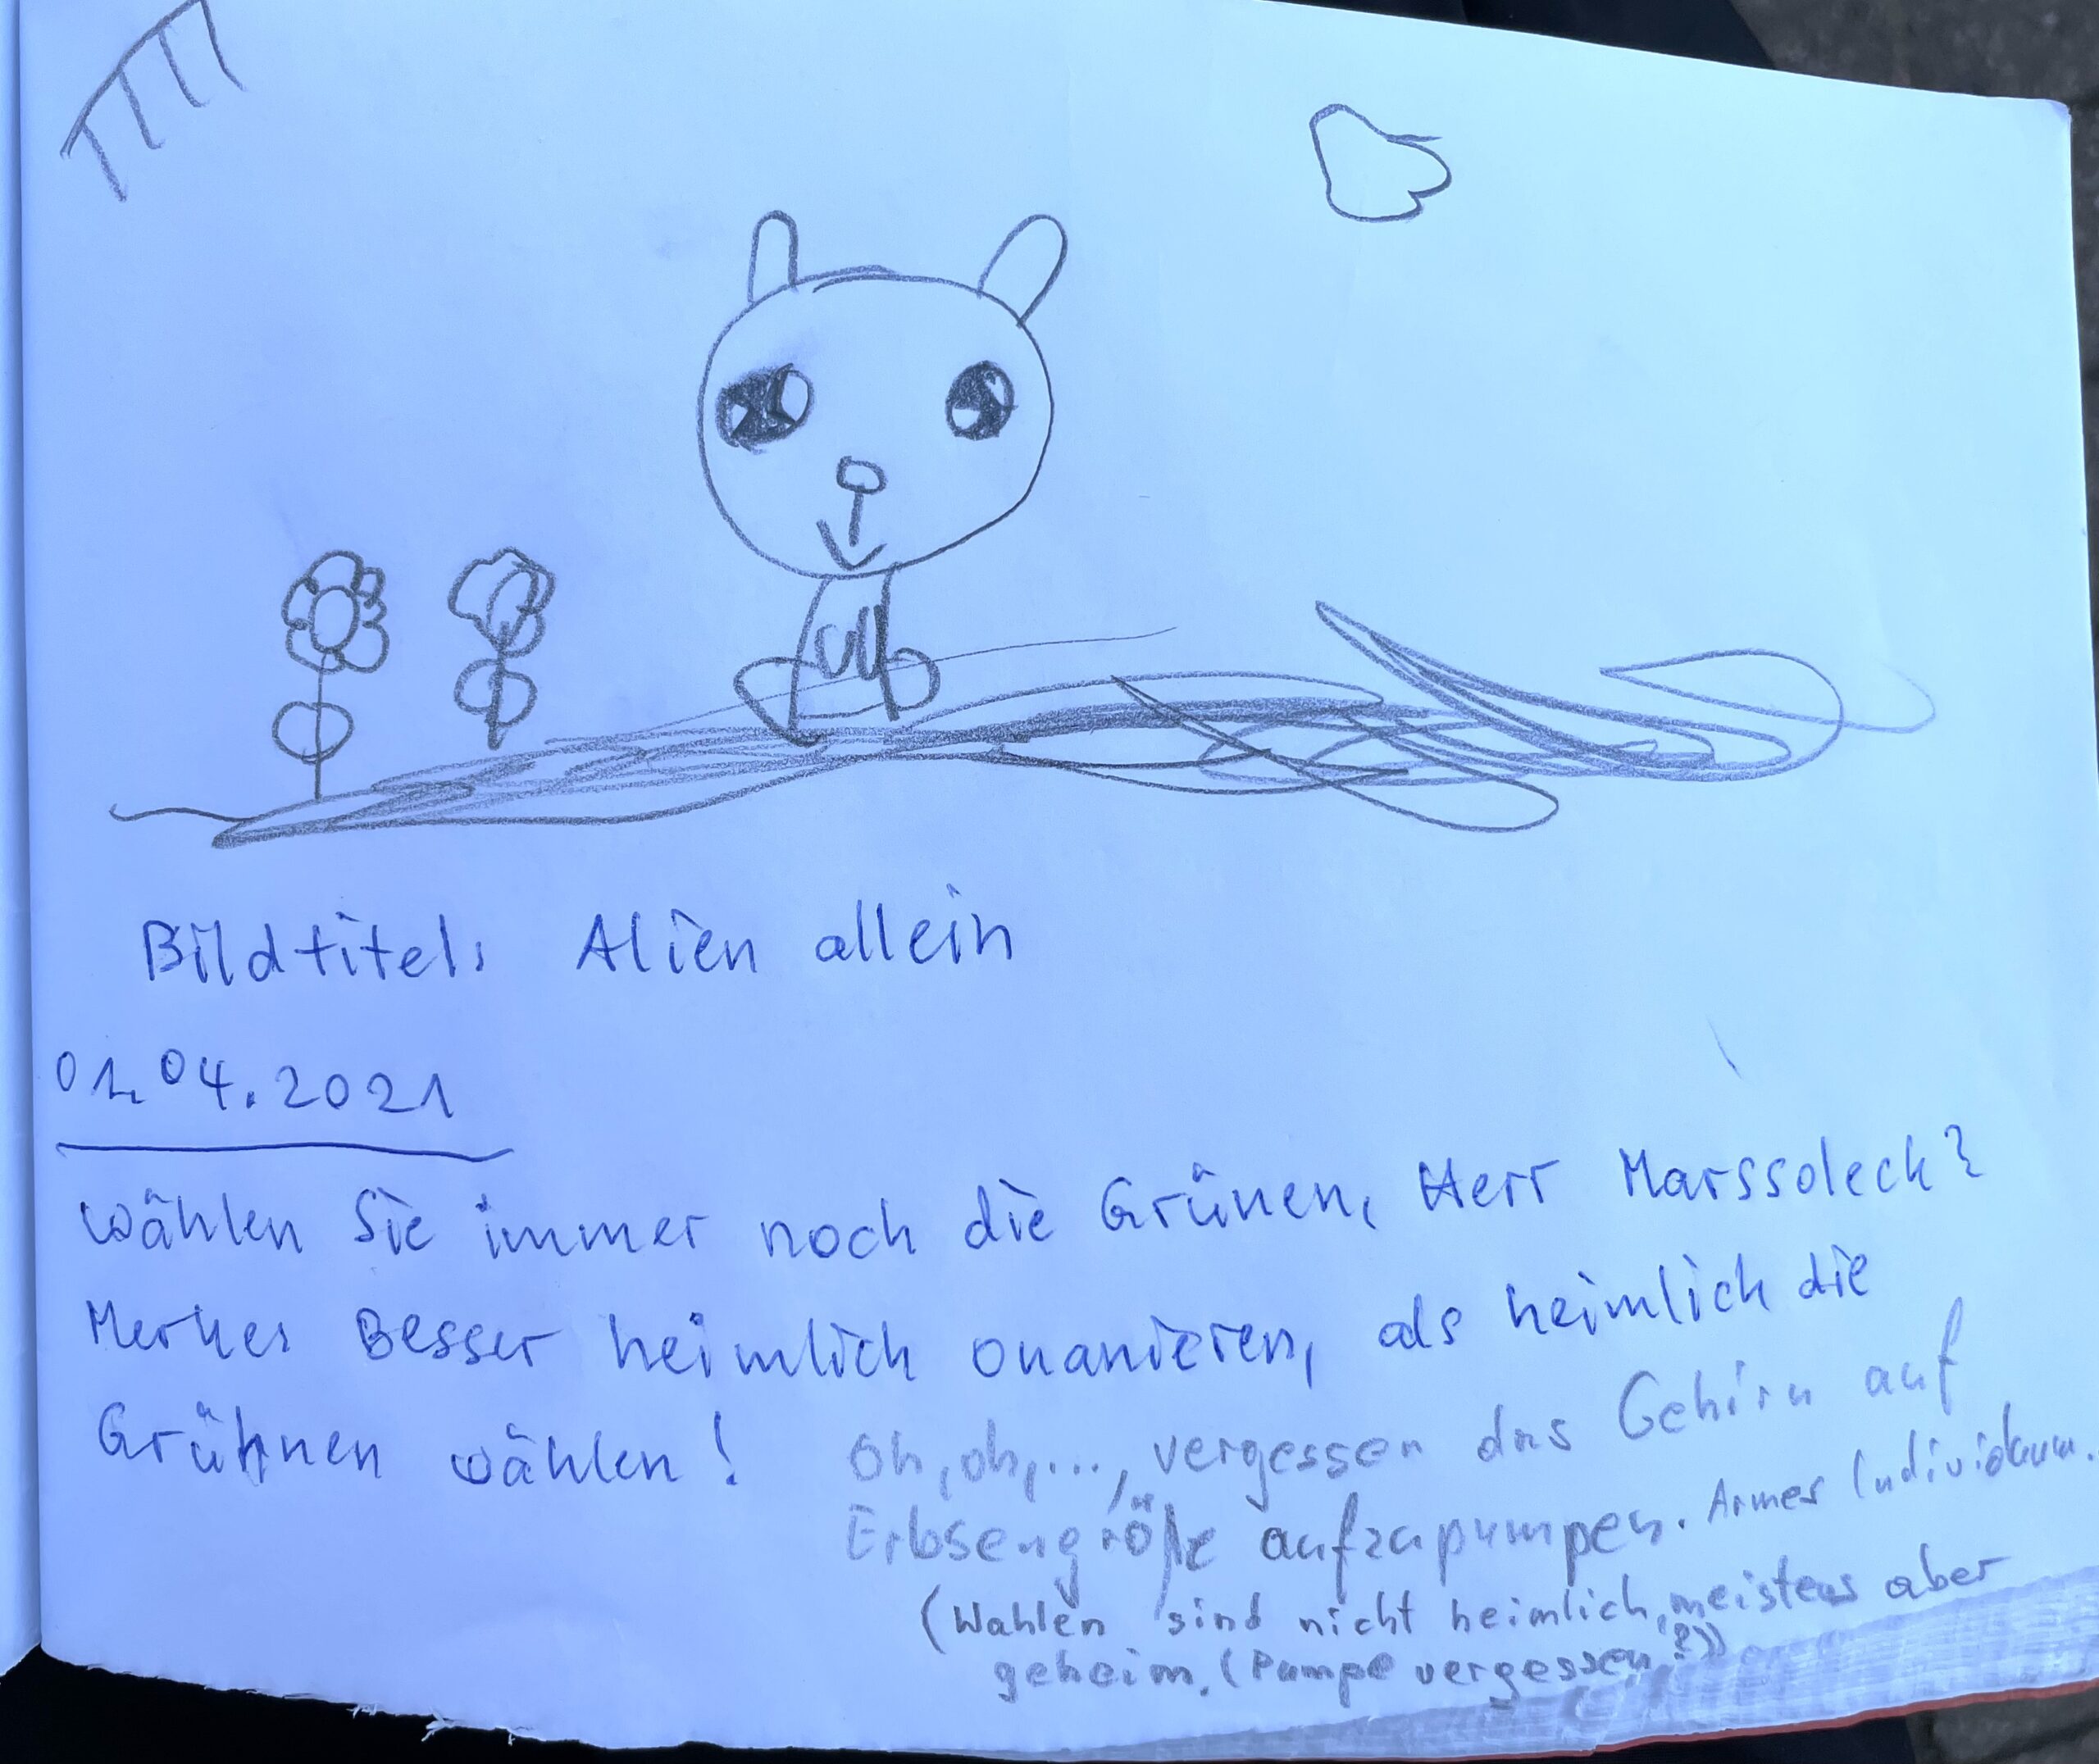 Bildtitel: Alien allein
01.04.2021
Wählen Sie immer noch die Grünen, Herr Marssoleck?
Merke: Besser heimlich onanieren, als heimlich die
Grühnen wählen!
Oh, oh, ..., vergessen das Gehirn auf
Erbsengröße aufzupumpen. Armes Individuum.
(Wahlen sind nicht heimlich, meistens aber
geheim. (Pumpe vergessen?))